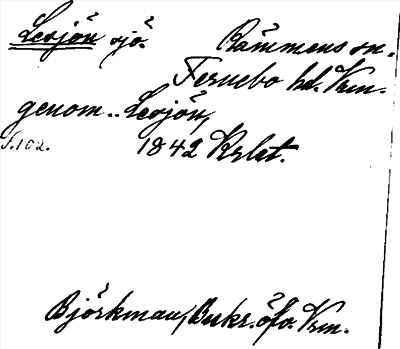 Lesjön sjö. Rämmens sn.
Fernebo hd. Vrm.
genom .. Lesjön,
S. 102. 1842 Krlst.
Björkman, Beskr. öfv. Vrm.